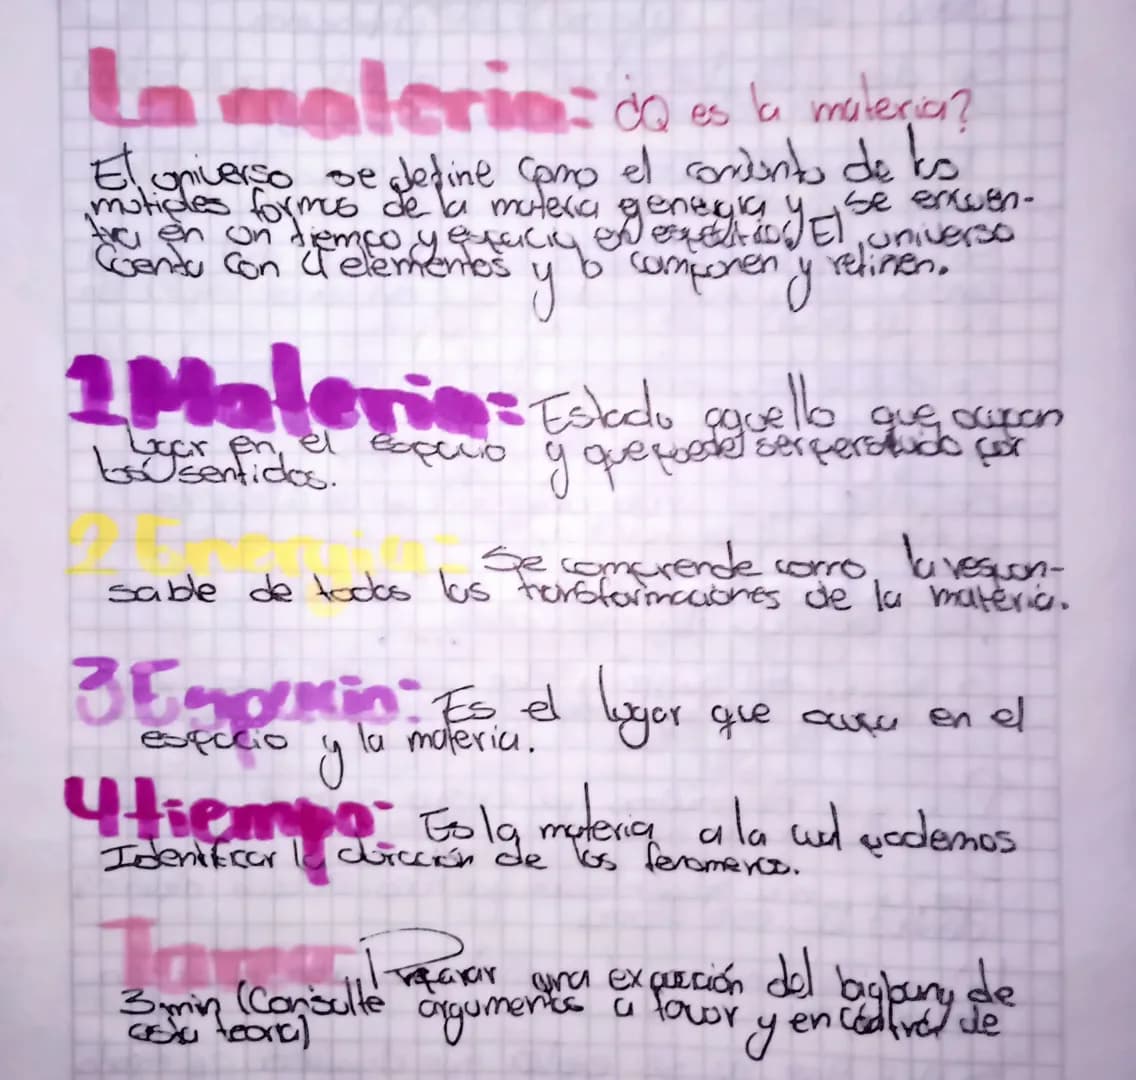 La materia: ¿Q es la materia?
El universo se define como el conjunto de los
multiples formas de la materia y energia y se encuen-
tra en un tiempo y espacio El universo
cuenta con 4 elementos y lo componen y
1 Materia: Estado aquello que ocupan
lugar en el espacio y que puede ser percibido por
los sentidos.
2 Energia: Se comprende como la respon-
sable de todas las transformaciones de la materia.
3 Espacio: Es el lugar que ocupa en el
espacio y la materia.
4 tiempo: Es la materia a la cual podemos
Identificar la duración de los fenomenos.
Tarea Preparar una exposición del bigbang de
3 min (Consulte argumentos a favor y en contra de
esta teoria)